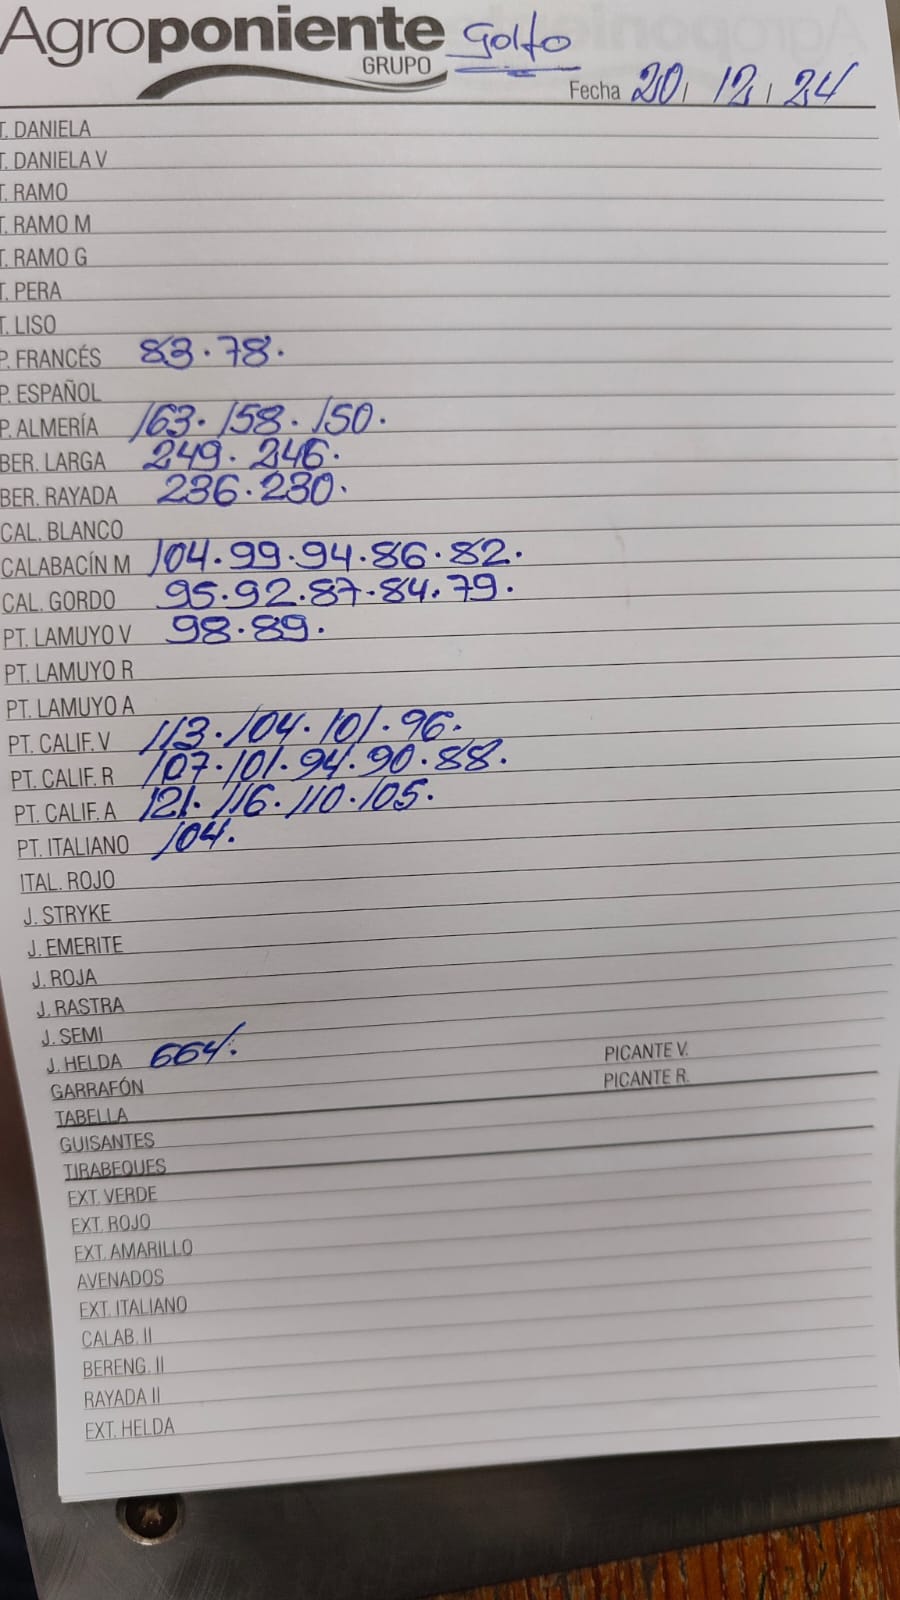 Agroponiente Golfo
GRUPO
Fecha 20, 12, 24
T. DANIELA
T. DANIELA V
T. RAMO
T. RAMO M
T. RAMO G
T. PERA
T. LISO
P. FRANCÉS 83.78.
P. ESPAÑOL
P. ALMERÍA 163.158.150.
BER. LARGA 249.246.
BER. RAYADA 236.230.
CAL. BLANCO
CALABACÍN M 104.99.94.86.82.
CAL. GORDO 95.92.87.84.79.
PT. LAMUYO V 98.89.
PT. LAMUYO R
PT. LAMUYO A
PT. CALIF. V 113.104.101.96.
PT. CALIF. R 107.101.94.90.88.
PT. CALIF. A 121.116.110.105.
PT. ITALIANO 104.
ITAL. ROJO
J. STRYKE
J. EMERITE
J. ROJA
J. RASTRA
J. SEMI
J. HELDA 664. PICANTE V.
GARRAFÓN PICANTE R.
TABELLA
GUISANTES
TIRABEQUES
EXT. VERDE
EXT. ROJO
EXT. AMARILLO
AVENADOS
EXT. ITALIANO
CALAB. II
BERENG. II
RAYADA II
EXT. HELDA